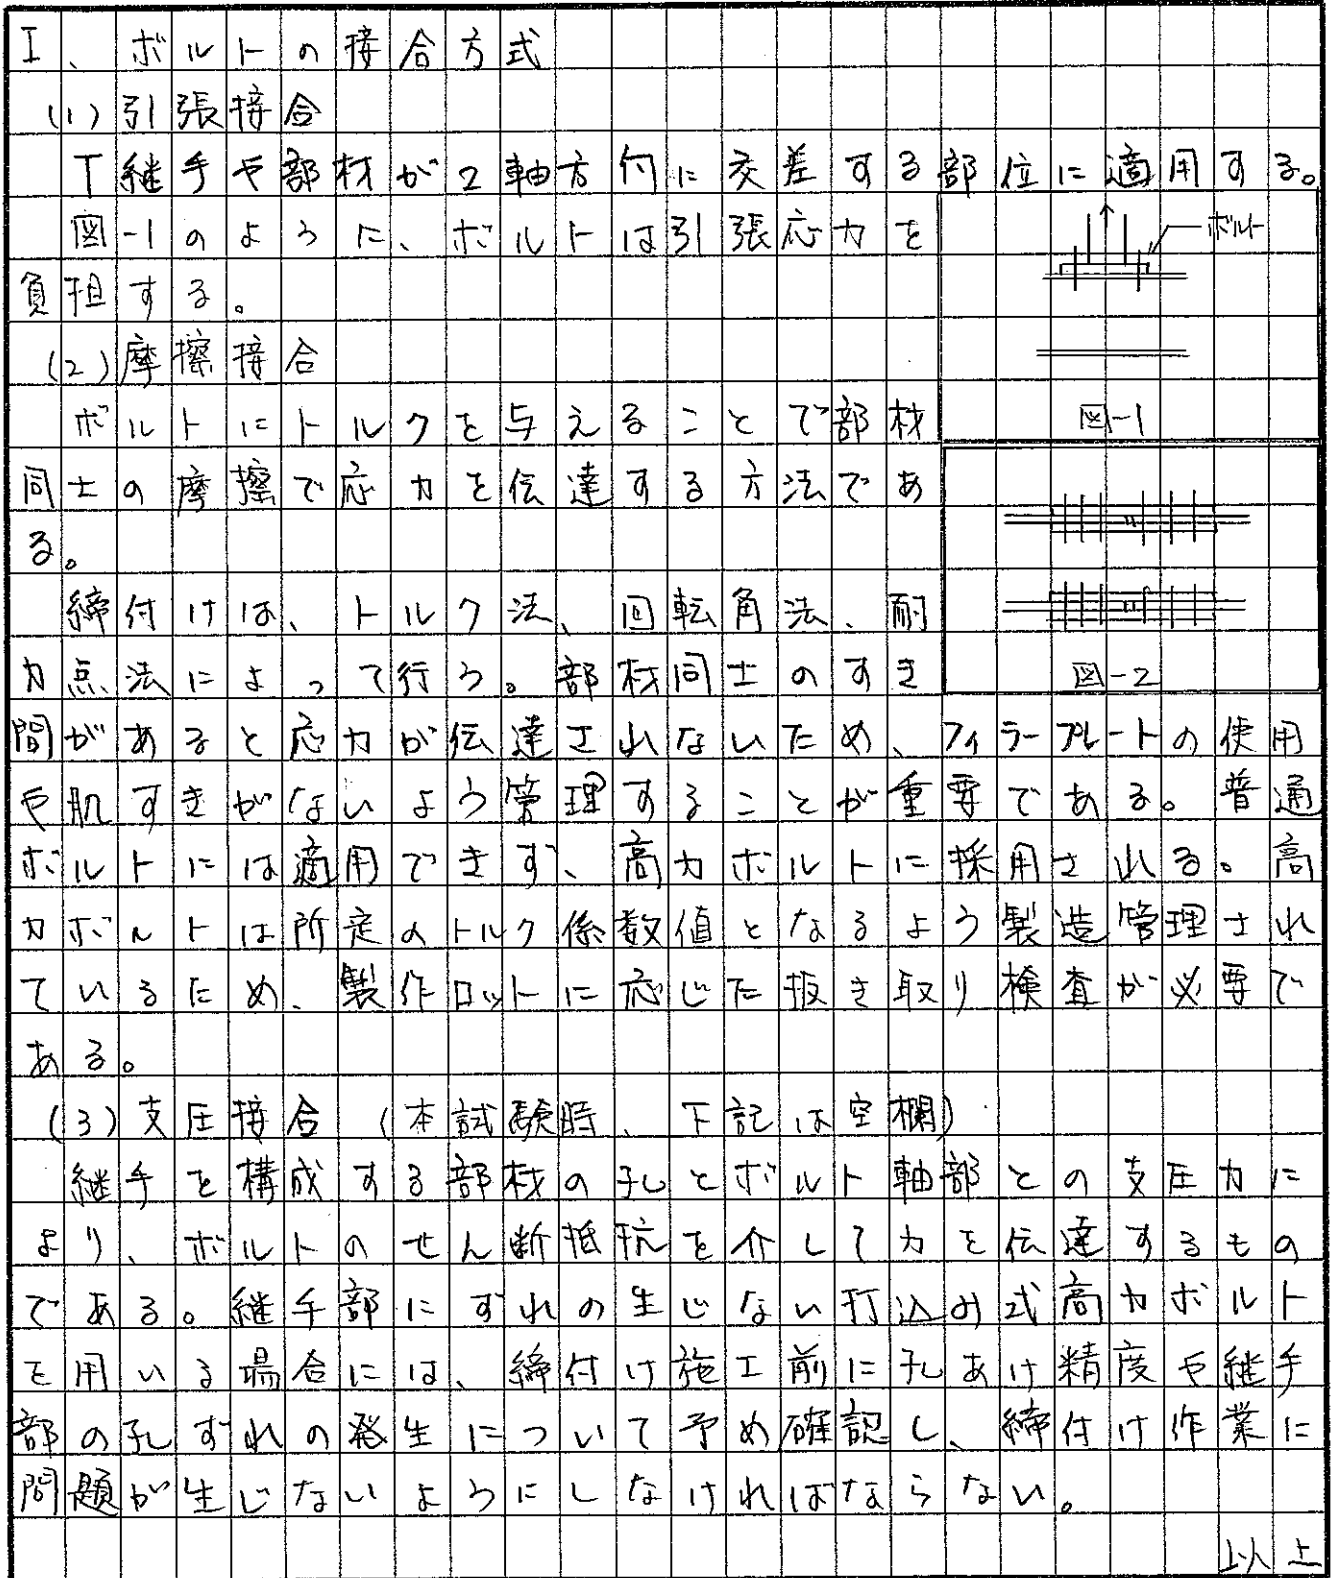 I、ボルトの接合方式
(1)引張接合
T継手や部材が2軸方付に交差する部位に適用する。
図-1のように、ボルトは引張応力を
負担する。
(2)摩擦接合
ボルトにトルクを与えることで部材
同士の摩擦で応力を伝達する方法であ
る。
締付けは、トルク法、回転角法、耐
力点法によって行う。部材同士のすき
間があると応力が伝達されないため、フィラープレートの使用
や肌すきがないよう管理することが重要である。普通
ボルトには適用できず、高力ボルトに採用される。高
力ボルトは所定のトルク係数値となるよう製造管理され
ているため、製作ロットに応じた抜き取り検査が必要で
ある。
(3)支圧接合(本試験時、下記は空欄)
継手を構成する部材の孔とボルト軸部との支圧力に
より、ボルトのせん断抵抗を介して力を伝達するもの
である。継手部にずれの生じない打込み式高力ボルト
を用いる場合には、締付け施工前に孔あけ精度や継手
部の孔ずれの発生について予め確認し、締付け作業に
問題が生じないようにしなければならない。
以上
ボルト
図-1
図-2